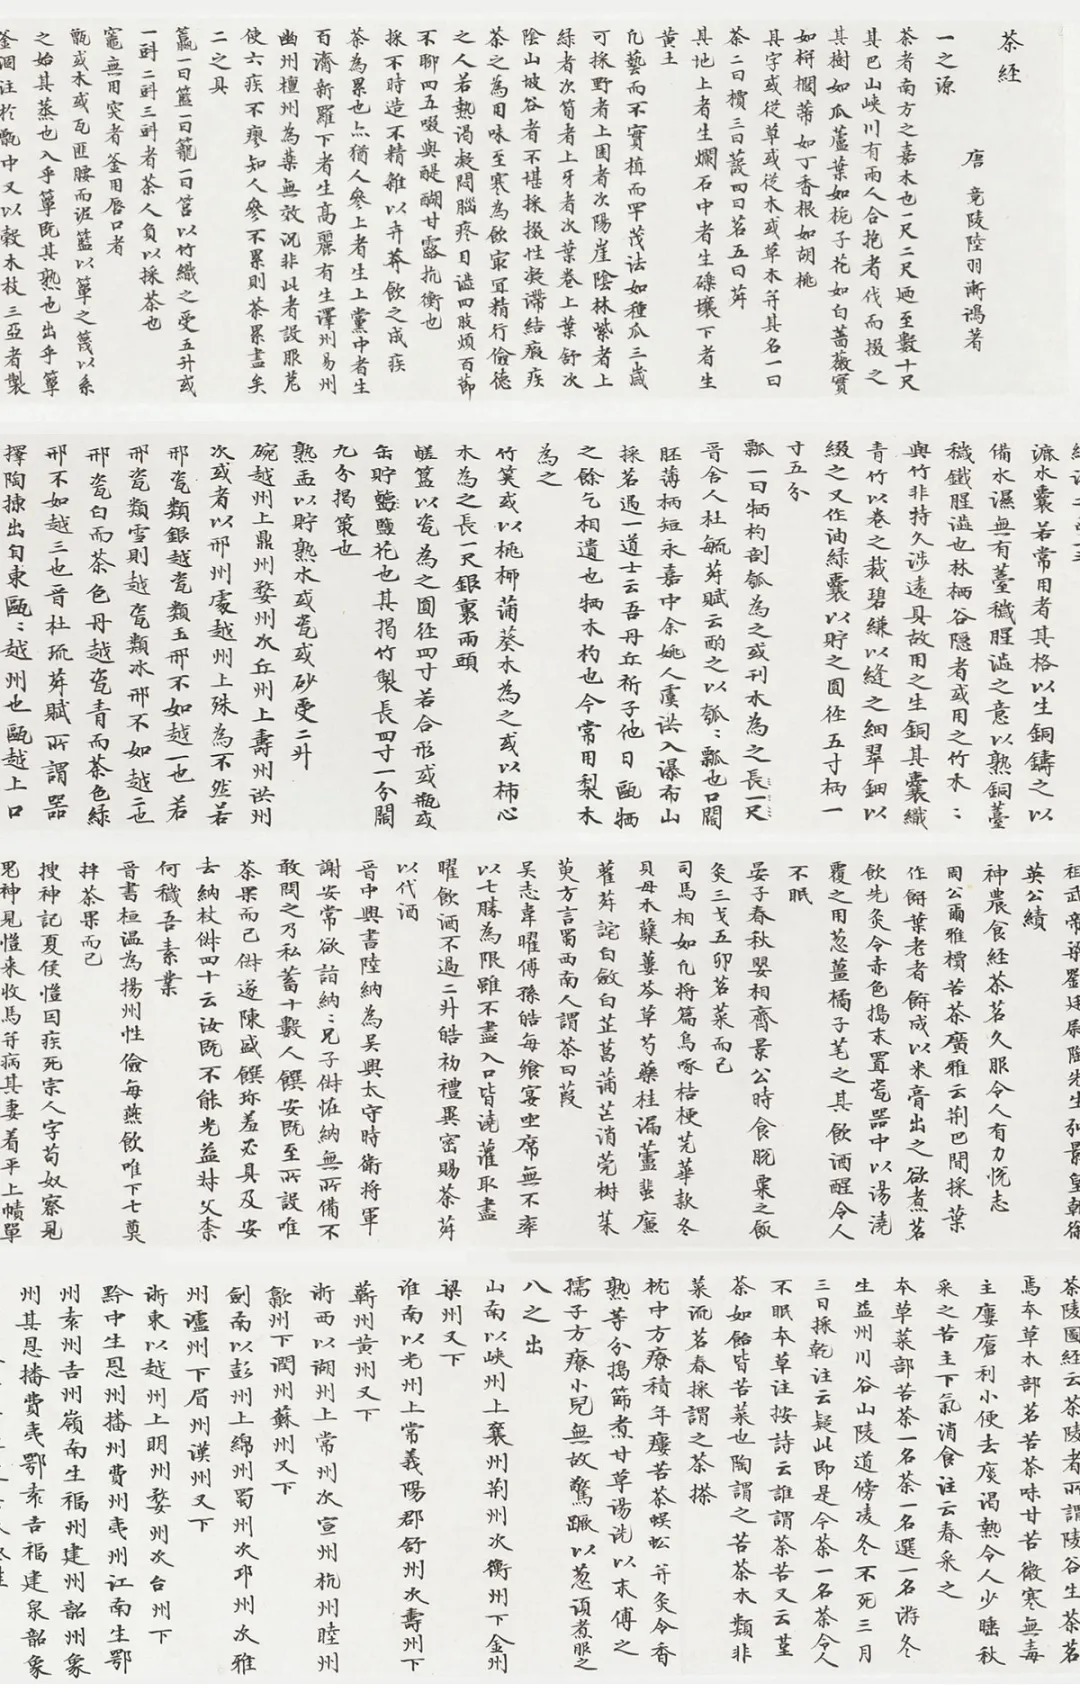 茶経
唐 竟陵陸羽漸鴻著
一之源
茶者南方之嘉木也一尺二尺迺至數十尺
其巴山峽川有兩人合抱者伐而掇之
其樹如瓜蘆葉如梔子花如白薔薇實
如栟櫚蒂如丁香根如胡桃
其字或從草或從木或草木并其名一曰
茶二曰檟三曰蔎四曰茗五曰荈
其地上者生爛石中者生礫壤下者生
黄土
凢藝而不實植而罕茂法如種瓜三歲
可採野者上園者次陽崖陰林紫者上
緑者次筍者上牙者次葉卷上葉舒次
陰山坡谷者不堪採掇性凝滯結瘕疾
茶之為用味至寒為飲最冝精行儉德
之人若熱渴凝悶腦疼目澁四肢煩百節
不聊四五啜與醍醐甘露抗衡也
採不時造不精雜以卉莽飲之成疾
茶為累也亦猶人參上者生上黨中者生
百濟新羅下者生高麗有生澤州易州
幽州檀州為藥無效況非此者設服薺
使六疾不瘳知人參不累則茶累盡矣
二之具
籯一曰籃一曰籠一曰筥以竹織之受五升或
一㪷二㪷三㪷者茶人負以採茶也
竈無用突者釜用唇口者
甑或木或瓦匪腰而泥籃以箄之篾以系
之始其蒸也入乎箄既其熟也出乎箄
釜涸注於甑中又以榖木枝三亞者製
漉水囊若常用者其格以生銅鑄之以
備水濕無有薹穢腥澁之意以熟銅薹
穢鐵腥澁也林栖谷隱者或用之竹木：
與竹非持久涉遠具故用之生銅其囊織
青竹以卷之裁碧縑以縫之細翠鈿以
綴之又作油緑囊以貯之圓徑五寸柄一
寸五分
瓢一曰牺杓剖瓠為之或刊木為之長一尺
晋舍人杜毓荈賦云酌之以瓠：瓢也口闊
胚薄柄短永嘉中余姚人虞洪入瀑布山
採茗遇一道士云吾丹丘祈子他日甌牺
之餘乞相遺也牺木杓也今常用梨木
為之
竹筴或以桃桺蒲葵木為之或以柿心
木為之長一尺銀裹兩頭
鹾簋以瓷為之圓徑四寸若合形或瓶或
缶貯鹽鹽花也其揭竹製長四寸一分闊
九分揭策也
熟盂以貯熟水或瓷或砂受二升
碗越州上鼎州婺州次丘州上壽州洪州
次或者以邢州處越州上殊為不然若
邢瓷類銀越瓷類玉邢不如越一也若
邢瓷類雪則越瓷類冰邢不如越二也
邢瓷白而茶色丹越瓷青而茶色緑
邢不如越三也晋杜琉荈賦所謂器
擇陶揀出自東甌：越州也甌越上口
英公績
神農食経茶茗久服令人有力悦志
周公爾雅檟苦茶廣雅云荆巴間採葉
作餅葉老者餅成以米膏出之欲煮茗
飲先灸令赤色搗末置瓷器中以湯澆
覆之用葱薑橘子芼之其飲酒醒令人
不眠
晏子春秋嬰相齊景公時食脱粟之飯
灸三戈五卯茗菜而已
司馬相如凢将篇烏啄桔梗芫華款冬
貝母木蘗蔞芩草芍藥桂漏蘆蜚廉
雚菌荈詫白斂白芷菖蒲芒消莞樹茱
萸方言蜀西南人謂茶曰葭
吴志韋曜傳孫皓每飨宴坐席無不率
以七勝為限雖不盡入口皆澆灌取盡
曜飲酒不過二升皓初禮異密賜茶荈
以代酒
晉中興書陸納為吴興太守時衛将軍
謝安常欲詣納：兄子俶恠納無所備不
敢問之乃私蓄十數人饌安既至所設唯
茶果而已俶遂陳盛饌珎羞必具及安
去納杖俶四十云汝既不能光益叔父柰
何穢吾素業
晋書桓温為揚州性儉每燕飲唯下七奠
拌茶果而已
搜神記夏侯愷因疾死宗人字苟奴察見
鬼神見愷来收馬并病其妻着平上幘單
茶陵圖経云茶陵者所謂陵谷生茶茗
焉本草木部茗苦茶味甘苦微寒無毒
主瘻瘡利小便去痰渴熱令人少睡秋
采之苦主下氣消食注云春采之
本草菜部苦茶一名茶一名選一名游冬
生益州川谷山陵道傍凌冬不死三月
三日採乾注云疑此即是今茶一名荼令人
不眠本草注按詩云誰謂荼苦又云堇
荼如飴皆苦菜也陶謂之苦茶木類非
菜流茗春採謂之茶搽
枕中方療積年瘻苦茶蜈蚣并灸令香
熟等分搗篩煮甘草湯洗以末傅之
孺子方療小兒無故驚蹶以葱湏煮服之
八之出
山南以峡州上襄州荆州次衡州下金州
梁州又下
淮南以光州上常義陽郡舒州次壽州下
蘄州黄州又下
浙西以湖州上常州次宣州杭州睦州
歙州下潤州蘇州又下
劍南以彭州上綿州蜀州次邛州次雅
州瀘州下眉州漢州又下
浙東以越州上明州婺州次台州下
黔中生恩州播州費州夷州江南生鄂
州袁州吉州嶺南生福州建州韶州象
州其恩播費夷鄂袁吉福建泉韶象